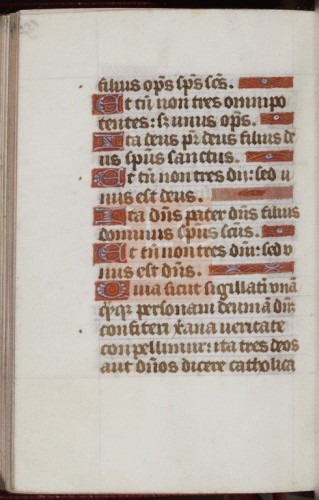 filius op̄s sp̄s sc̄s.
Et tn̄ non tres omnipo
tentes: sz unus op̄s.
Ita deus pr̄ deus filius de
us sp̄us sanctus.
Et tn̄ non tres dii: sed u
nus est deus.
Ita dn̄s pater dn̄s filius
dominus sp̄us scūs.
Et tn̄ non tres dn̄i: sed v
nus est dn̄s.
Quia sicut sigillati vnā
qēqz personam deum a dn̄
confiteri xp̄ana ueritate
conpellimur: ita tres deos
aut dn̄os dicere catholica